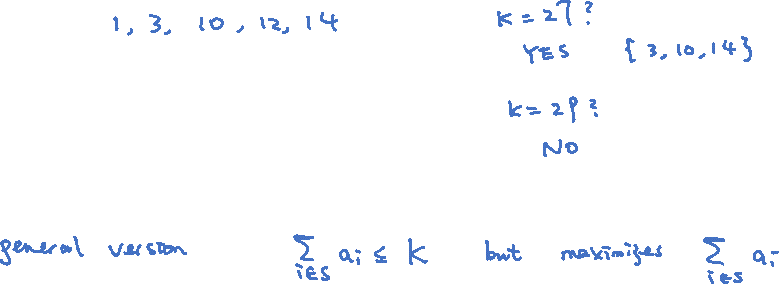 1, 3, 10, 12, 14
K = 27?
YES {3, 10, 14}
K = 29?
NO
general version ∑_{i∈S} a_i ≤ K but maximizes ∑_{i∈S} a_i